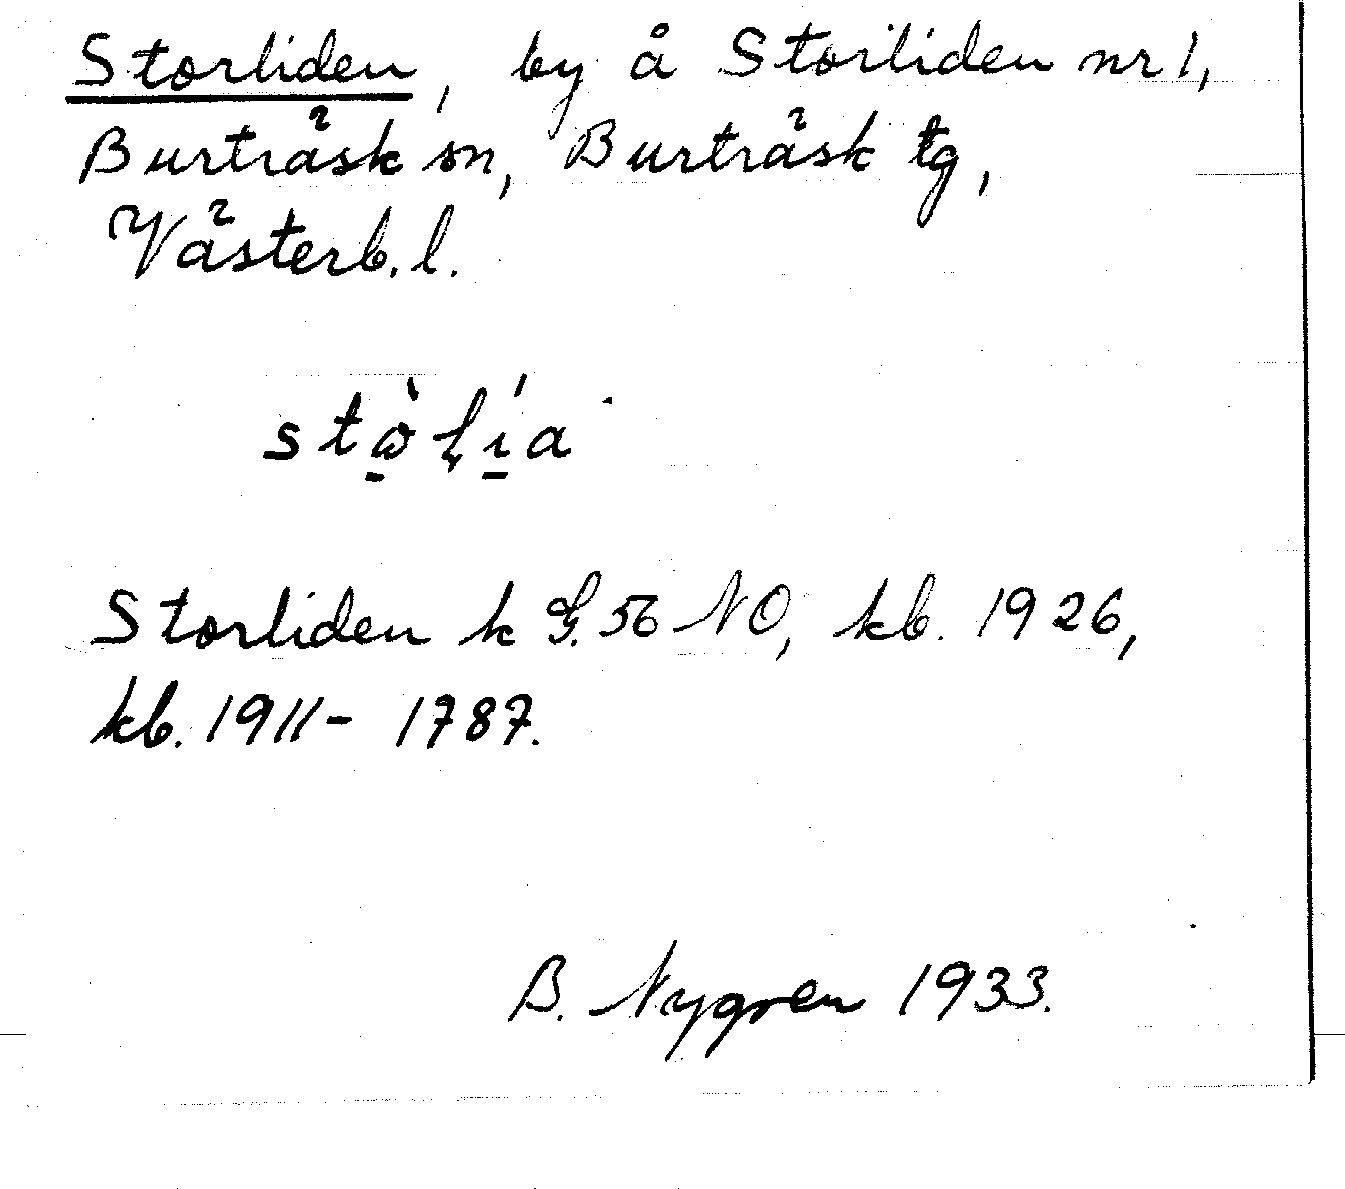 Storliden, by å Storliden nr 1,
Burträsk sn, Burträsk tg,
Västerb. l.
Storliden k G. 56 NO, kb. 1926,
kb. 1911 - 1787.
B. Nygren 1933.